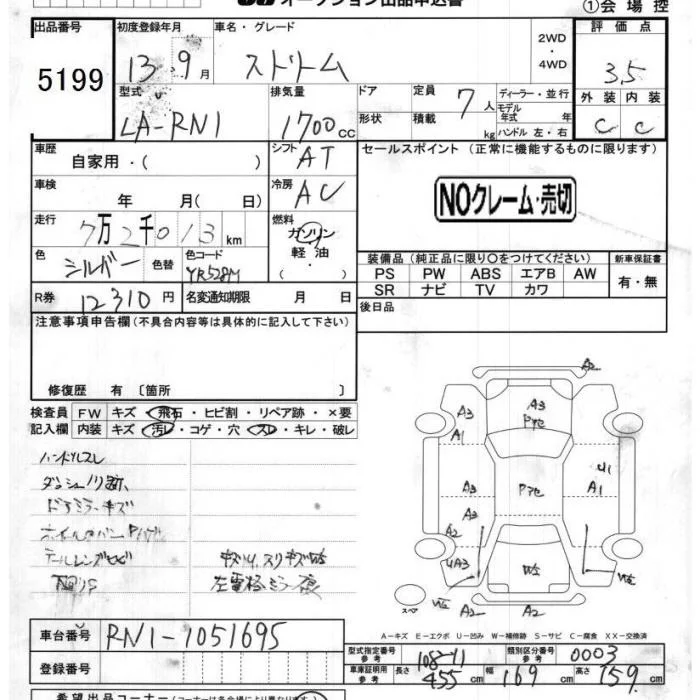 オークション出品申込書
①会場控
出品番号
5199
初度登録年月
13 9月
車名・グレード
ストリーム
2WD
・
4WD
評価点
3.5
型式
LA-RN1
排気量
1700cc
ドア
形状
定員
7人
積載
kg
ディーラー・並行
モデル年式 年式
ハンドル 左・右
外装 内装
C C
車歴
自家用・( )
シフト
AT
セールスポイント (正常に機能するものに限ります)
車検
年 月( 日)
冷房
AC
NOクレーム・売切
走行
7万2千013km
燃料
ガソリン
軽油
・( )
色
シルバー
色替
色コード
YR528M
装備品 (純正品に限り○をつけてください)
新車保証書
PS PW ABS エアB AW
SR ナビ TV カワ
有・無
R券
12310円
名変通知期限 月 日
後日品
注意事項申告欄 (不具合内容等は具体的に記入して下さい)
修復歴 有 〔箇所 〕
検査員
記入欄
FW キズ・飛石・ヒビ割・リペア跡・×要
内装 キズ・汚レ・コゲ・穴・スレ・キレ・破レ
ハンドルスレ
ダッシュノリ跡、
ドアミラーキズ
ホイルカバー
テールレンズヒビ
下回りS
左電格ミラー
A2
A3
A3
A1
U1
A3
A1
A3
A2
UA3
W2
A2
A2
スペア
A-キズ E-エクボ U-凹み W-補修跡 S-サビ C-腐食 XX-交換済
車台番号
RN1-1051695
登録番号
型式指定番号
参考
10854
類別区分番号
参考
0003
車庫証明用
参考
長さ 455cm 幅 169cm 高さ 159cm
希望出品コーナー